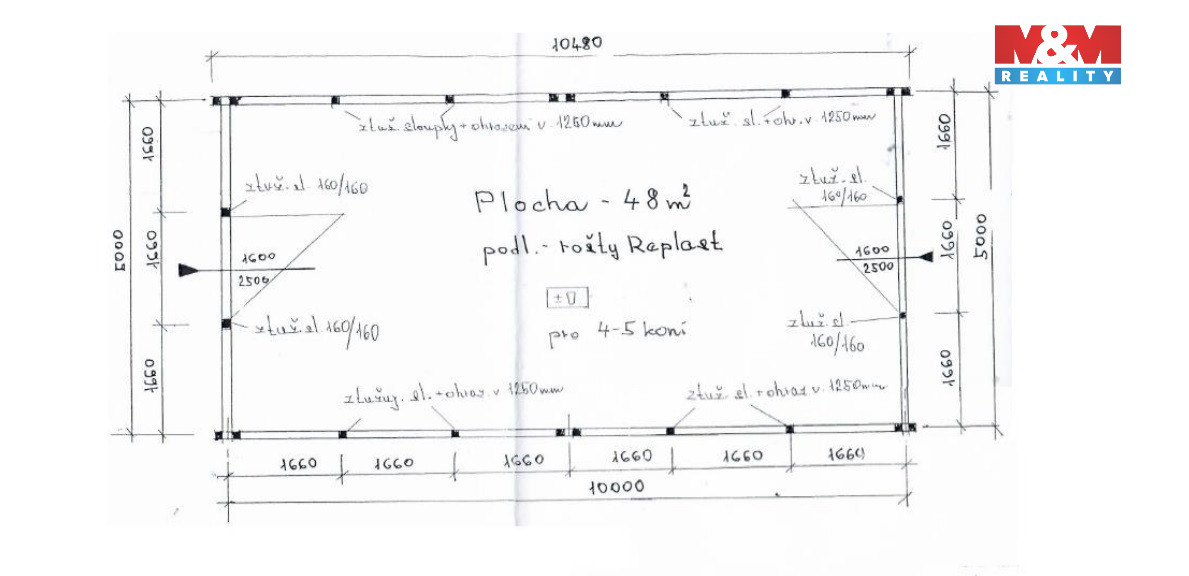 10480
M&M
REALITY
ztuž sloupky + ohrazení v 1250mm
ztuž. sl. + ohr. v 1250mm
1660
1660
ztuž. sl. 160/160
ztuž. sl.
160/160
Plocha - 48m²
podl. - rošty Replast
5000
1660
1600
2500
1600
2500
1660
5000
±0
pro 4-5 koní
ztuž. sl. 160/160
ztuž. sl.
160/160
1660
1660
ztužuj. sl. + ohraz. v 1250mm
ztuž. sl. + ohraz v. 1250mm
1660 1660 1660 1660 1660 1660
10000